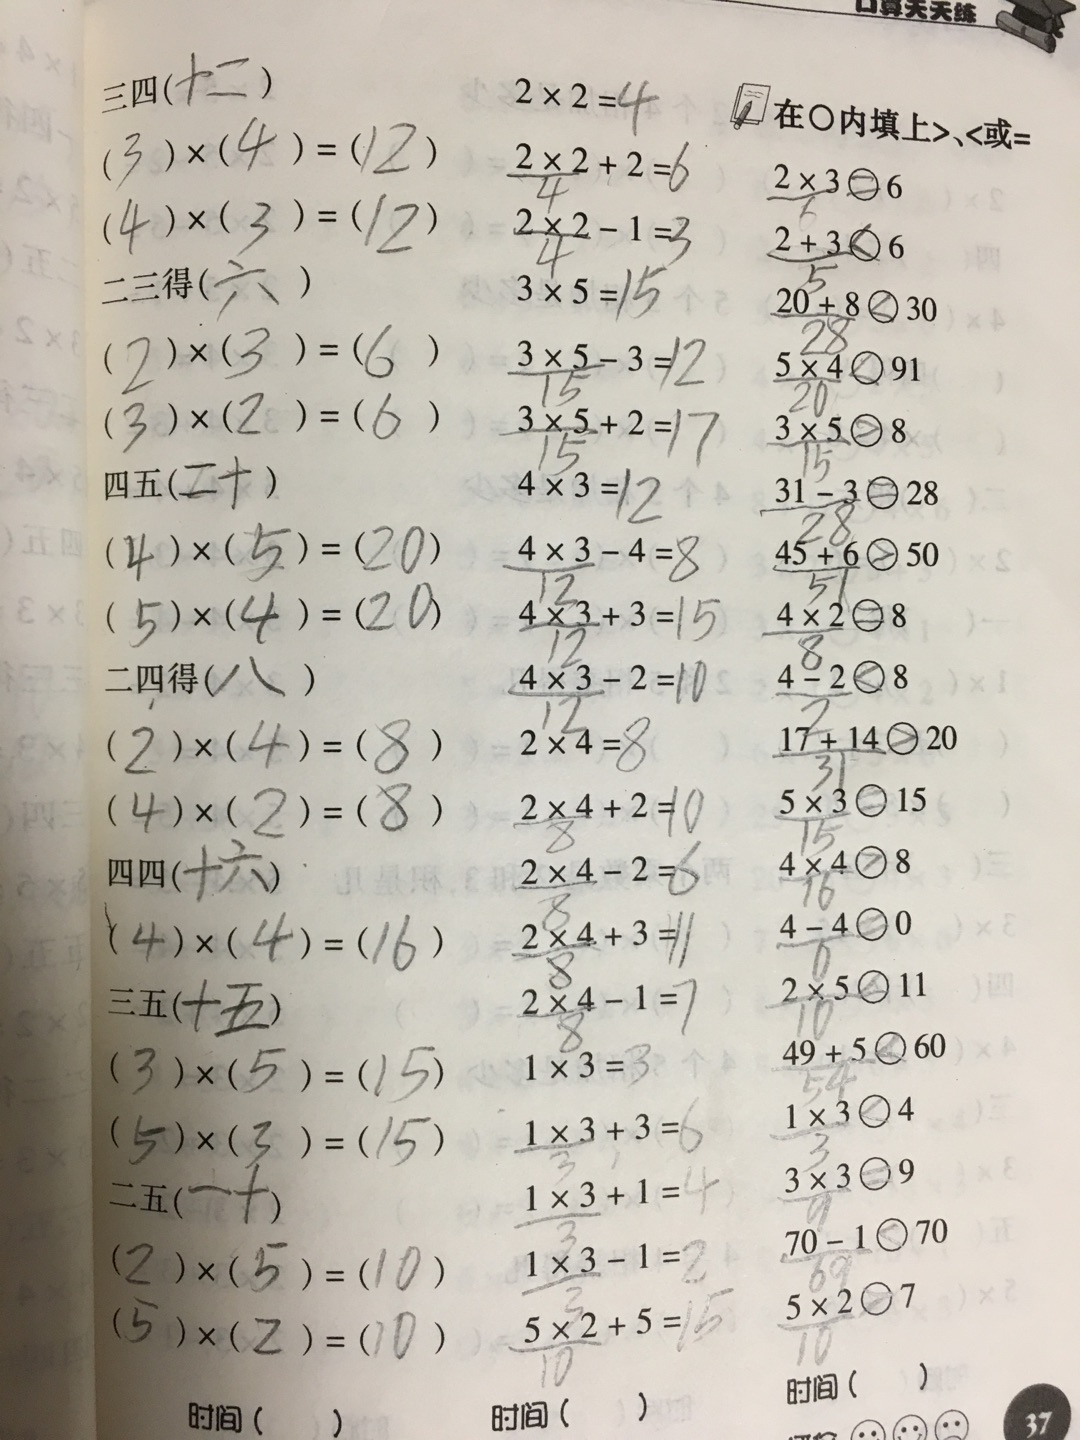 口算天天练
三四(十二)
(3)×(4)=(12)
(4)×(3)=(12)
二三得(六)
(2)×(3)=(6)
(3)×(2)=(6)
四五(二十)
(4)×(5)=(20)
(5)×(4)=(20)
二四得(八)
(2)×(4)=(8)
(4)×(2)=(8)
四四(十六)
(4)×(4)=(16)
三五(十五)
(3)×(5)=(15)
(5)×(3)=(15)
二五(一十)
(2)×(5)=(10)
(5)×(2)=(10)
时间( )
2×2=4
2×2+2=6
4
2×2-1=3
4
3×5=15
3×5-3=12
15
3×5+2=17
15
4×3=12
4×3-4=8
12
4×3+3=15
12
4×3-2=10
12
2×4=8
2×4+2=10
8
2×4-2=6
8
2×4+3=11
8
2×4-1=7
8
1×3=3
1×3+3=6
3
1×3+1=4
3
1×3-1=2
3
5×2+5=15
10
时间( )
在○内填上>、<或=
2×3=6
6
2+3<6
5
20+8<30
28
5×4<91
20
3×5>8
15
31-3=28
28
45+6>50
51
4×2=8
8
4-2<8
2
17+14>20
31
5×3=15
15
4×4>8
16
4-4=0
0
2×5<11
10
49+5<60
54
1×3<4
3
3×3=9
9
70-1<70
69
5×2>7
10
时间( )
37